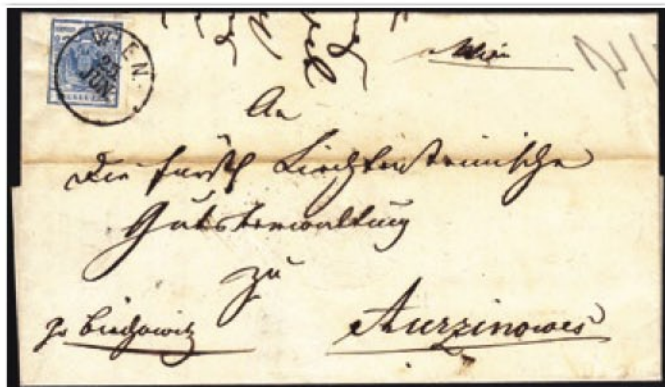 WIEN
23
JUN.
Wien
An
die fürstl Liechtensteinische
Gutsverwaltung
zu
Aurzinowes
pr Biechowitz